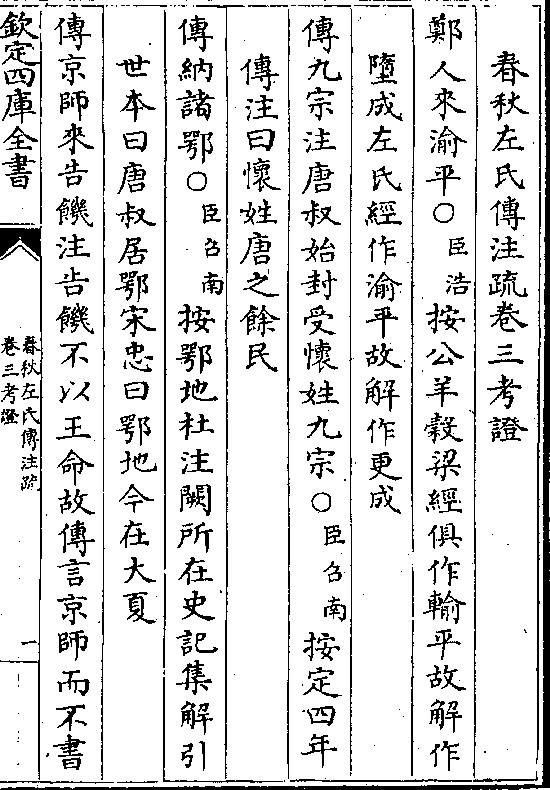 春秋左氏傳注疏卷三考證
鄭人來渝平○臣浩按公羊穀梁經俱作輸平故解作
墮成左氏經作渝平故解作更成
傳九宗注唐叔始封受懷姓九宗○臣召南按定四年
傳注曰懷姓唐之餘民
傳納諸鄂○臣召南按鄂地杜注闕所在史記集解引
世本曰唐叔居鄂宋忠曰鄂地今在大夏
傳京師來告饑注告饑不以王命故傳言京師而不書
欽定四庫全書
春秋左氏傳注疏
卷三考證
一